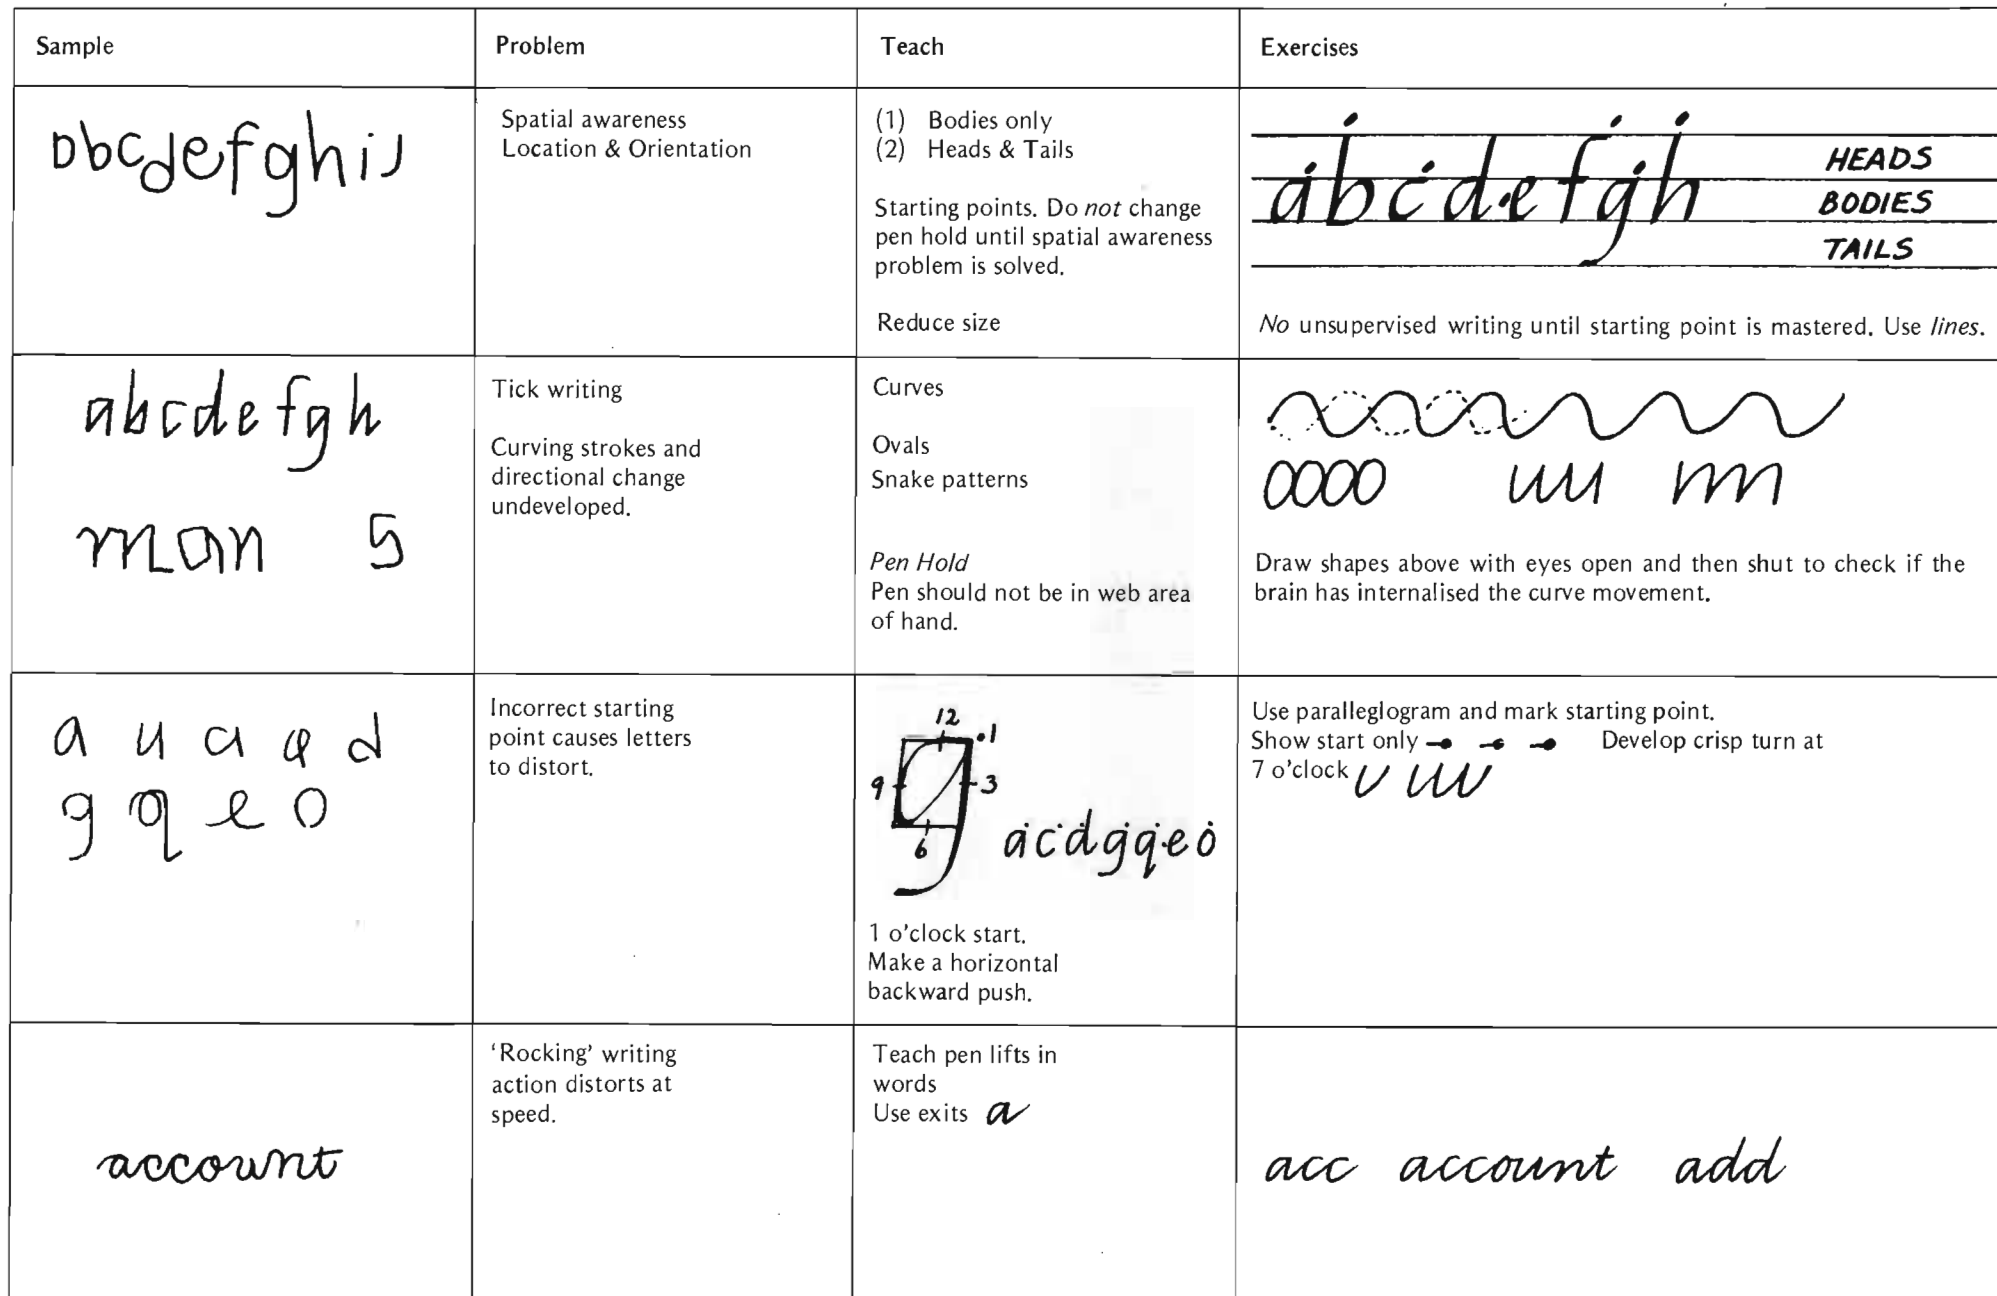 Sample
Problem
Teach
Exercises
abcdefghij
Spatial awareness
Location & Orientation
(1) Bodies only
(2) Heads & Tails
Starting points. Do not change
pen hold until spatial awareness
problem is solved.
Reduce size
abcdefgh
HEADS
BODIES
TAILS
No unsupervised writing until starting point is mastered. Use lines.
abcdefgh
man 5
Tick writing
Curving strokes and
directional change
undeveloped.
Curves
Ovals
Snake patterns
Pen Hold
Pen should not be in web area
of hand.
Draw shapes above with eyes open and then shut to check if the
brain has internalised the curve movement.
a u a q d
g q e o
Incorrect starting
point causes letters
to distort.
12
1
9
3
6
acdgqeo
1 o'clock start.
Make a horizontal
backward push.
Use paralleglogram and mark starting point.
Show start only Develop crisp turn at
7 o'clock
account
'Rocking' writing
action distorts at
speed.
Teach pen lifts in
words
Use exits a
acc account add